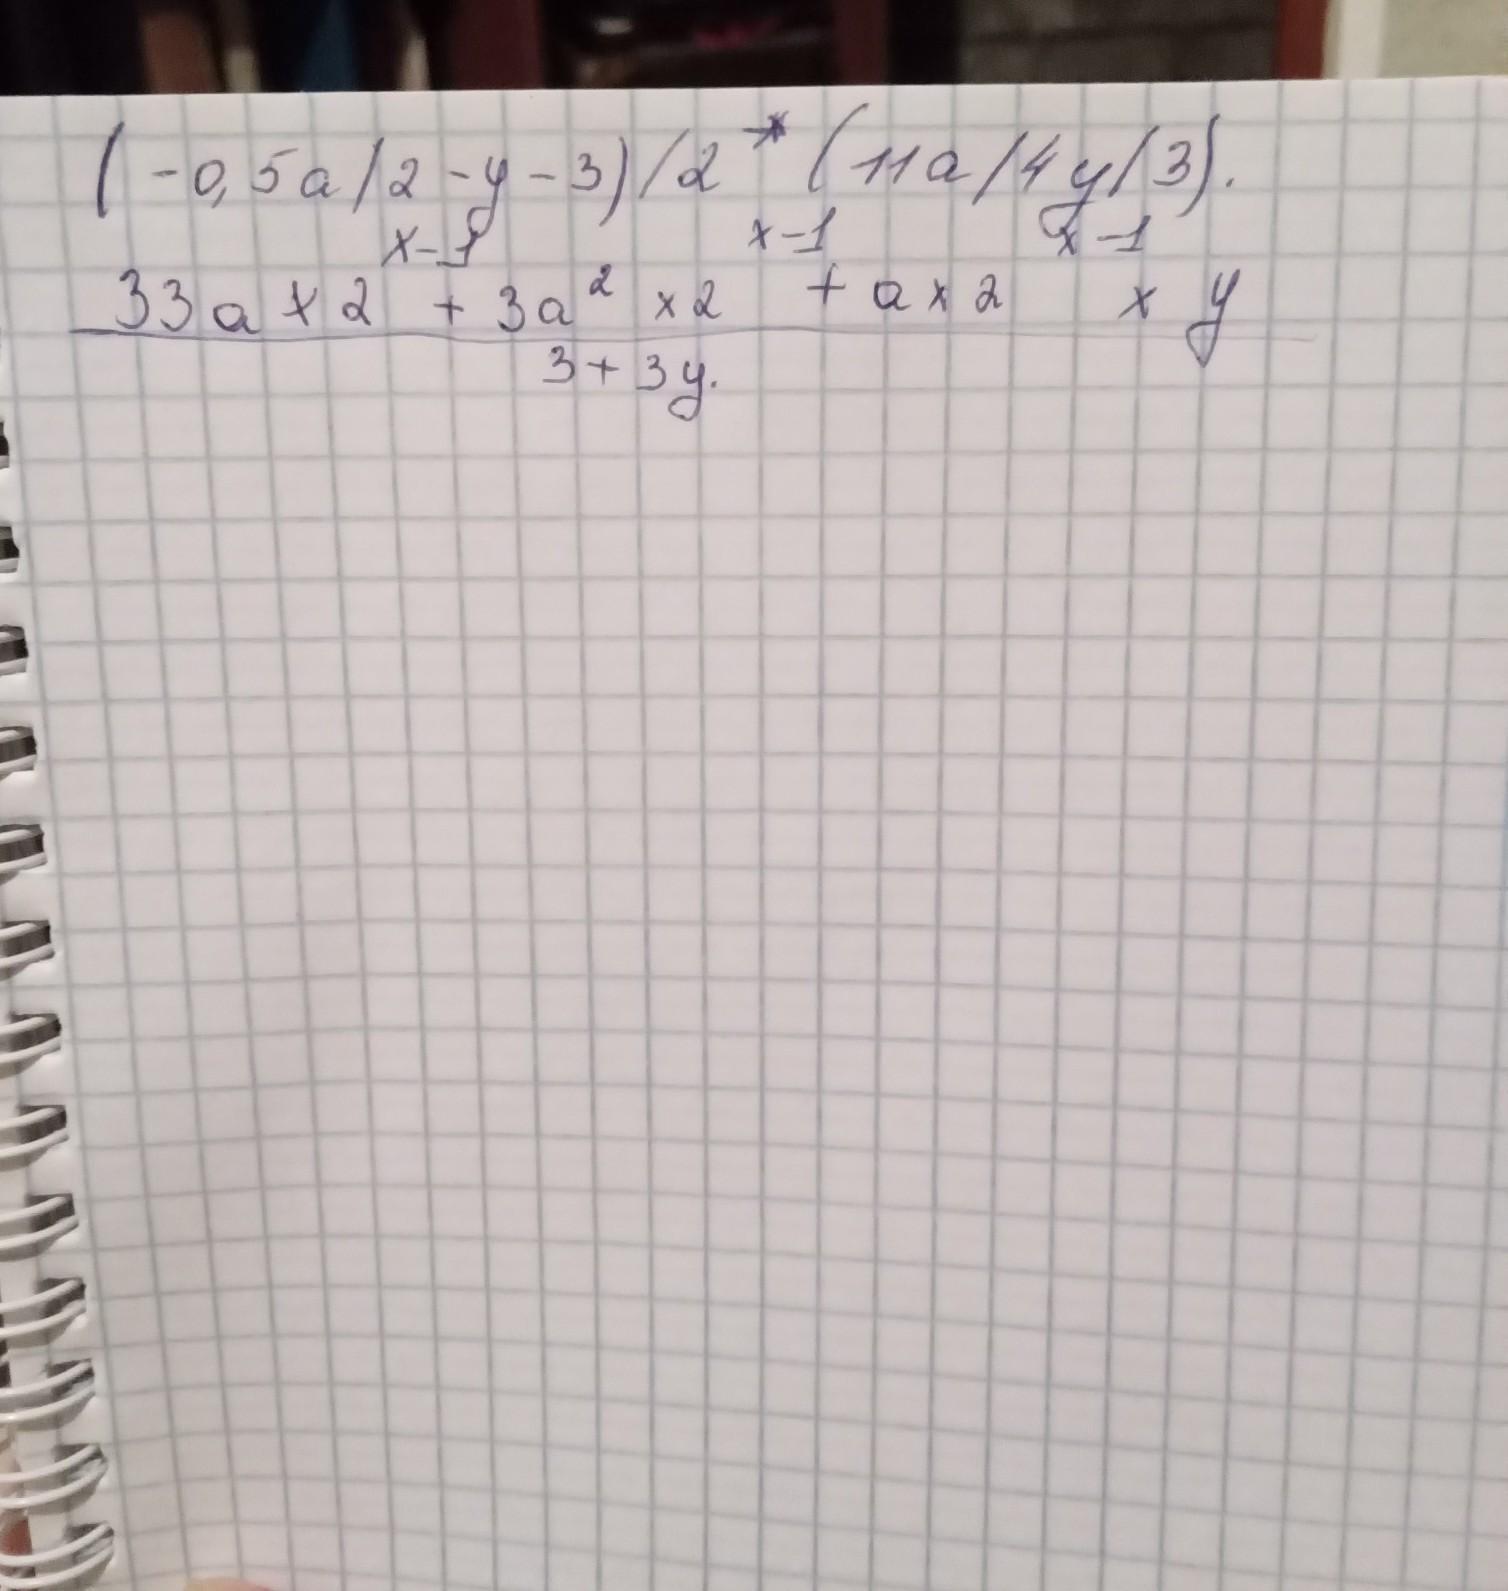 (-0,5a/2-y-3)/2*(11a/4y/3).
x-1 x-1 x-1
33a x 2 + 3a² x 2 + a x 2 x y
3+3y.